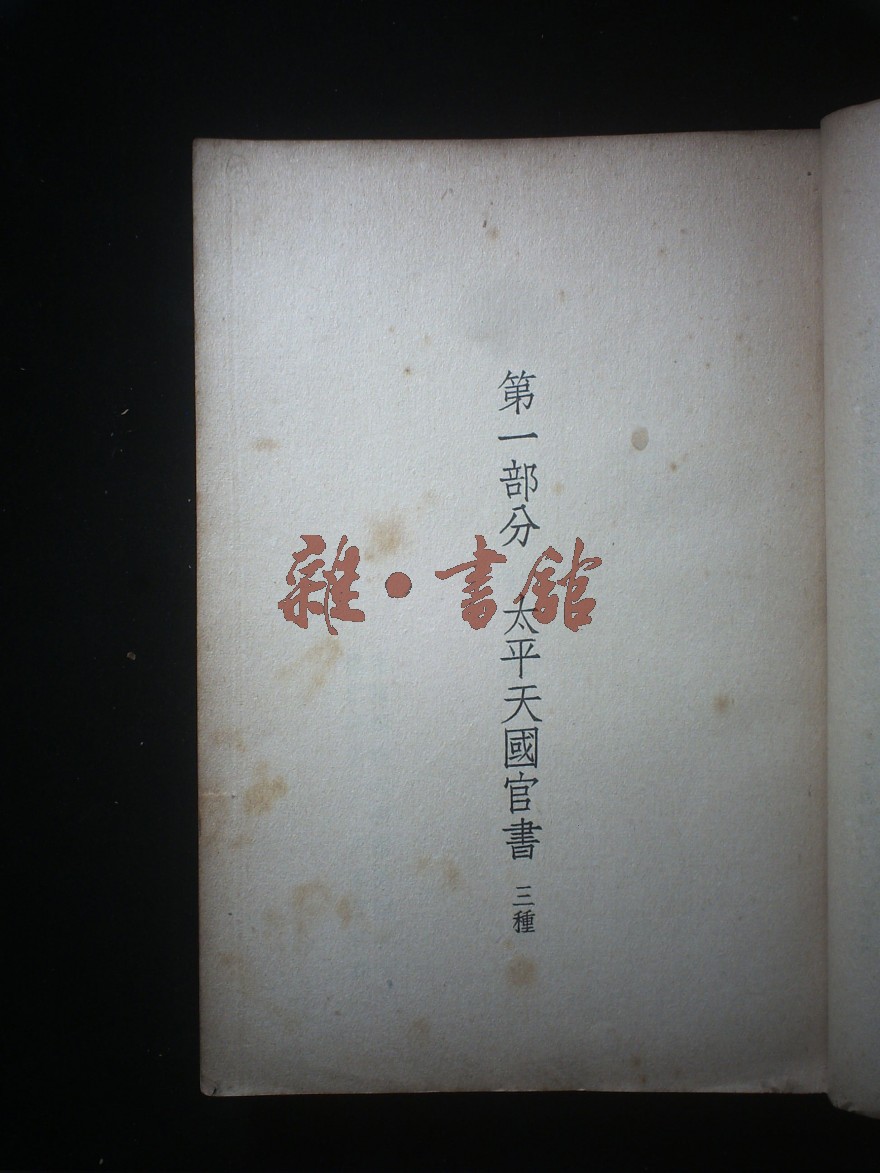 第一部分 太平天國官書 三種
雜·書館